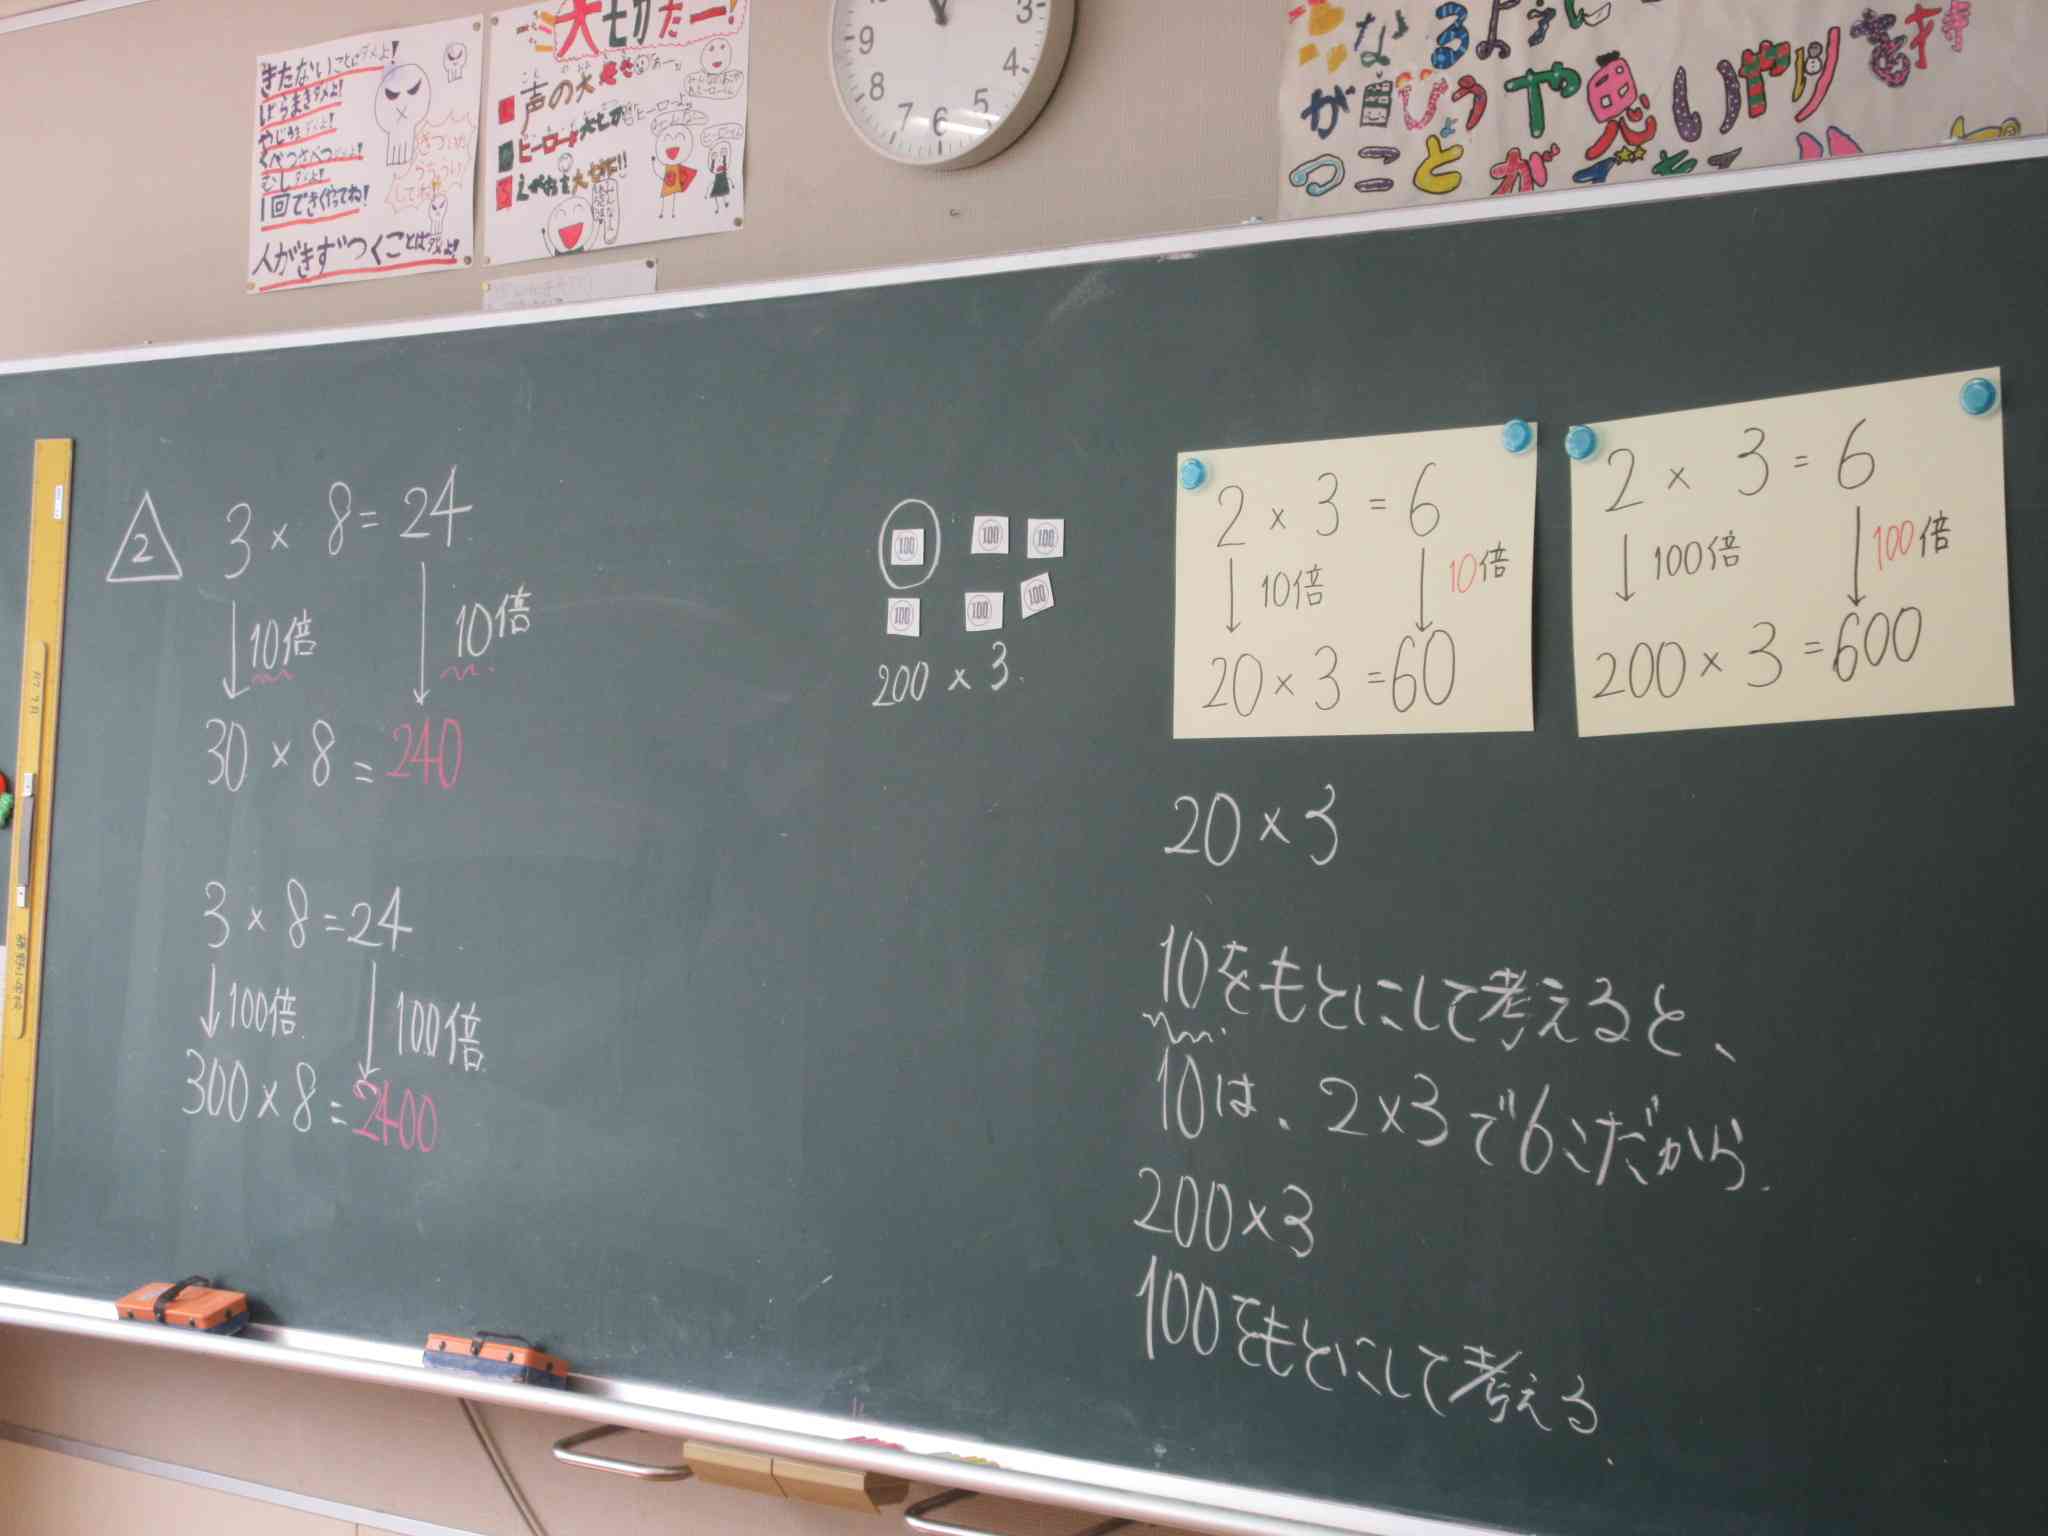 きたないことばダメよ!
ばらまきダメよ!
やじうまダメよ!
くべつさべつダメよ!
むしダメよ!
1回できく行ってね!
人がきずつくことはダメよ!
声の大きさ
えがおを大切に!!
9
8
7
6
5
4
3
なるように
が目ひょう
や思いやりを持
つことができ
2
3 × 8 = 24
10倍 10倍
30 × 8 = 240
3 × 8 = 24
100倍 100倍
300 × 8 = 2400
100 100 100
100 100 100
200 × 3
2 × 3 = 6
10倍 10倍
20 × 3 = 60
2 × 3 = 6
100倍 100倍
200 × 3 = 600
20 × 3
10をもとにして考えると、
10は、2×3で6こだから.
200×3
100をもとにして考える.